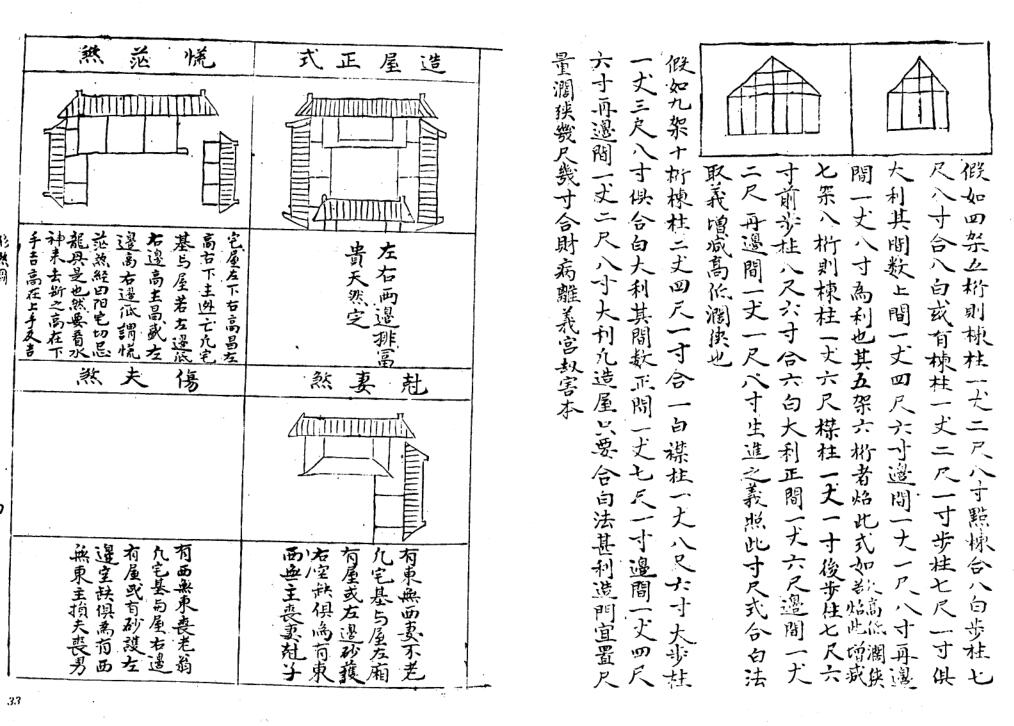 假如四架五桁則棟柱一丈二尺八寸點棟合八白步柱七
尺八寸合八白或有棟柱一丈二尺一寸步柱七尺一寸俱
大利其間数上間一丈四尺六寸邉間一丈一尺八寸再邉
間一丈八寸為利也其五架六桁者焰此式如若欠高低濶俠焰此增减
七架八桁則棟柱一丈六尺楪柱一丈一寸後步住七尺六
寸前步柱八尺六寸合六白大利正間一丈六尺邉間一丈
二尺再邉間一丈一尺八寸生進之義照此寸尺式合白法
取義增减高低濶俠也
假如九架十桁棟柱二丈四尺一寸合一白襟柱一丈八尺六寸大步柱
一丈三尺八寸俱合白大利其間数正間一丈七尺一寸邉間一丈四尺
六寸再邉間一丈二尺八寸大利凢造屋只要合白法甚利造門宜置尺
量濶狹幾尺幾寸合財病離義宫刼害本
造屋正式
左右两邉排富
貴天然定
慌茫煞
宅屋左下右高昌左
高右下主迯亡凢宅
基与屋若左邉底
右邉高主昌或左
邉高右邉低謂慌
茫煞経曰阳宅切忌
龍與是也然要看水
神来去断之高在下
手吉高在上手反吉
尅妻煞
有東無西妻不老
凢宅基与屋左廂
有屋或左邉砂䕶
右空缺俱為有東
西無主喪妻尅子
傷夫煞
有西無東喪老翁
凢宅基与屋右邉
有屋或有砂䕶左
邉空缺俱為有西
無東主損夫喪男
33